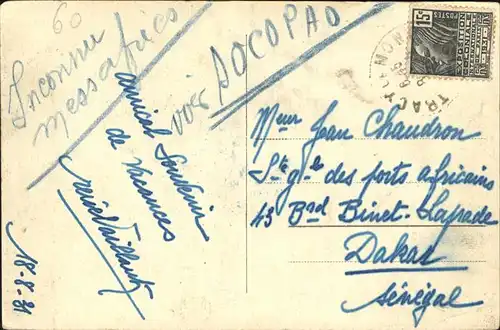 60
Inconnu
messafric
voir SOCOPAO
amical Souvenir
de Vacances
18-8-31
15c
POSTES
EXPOSITION
COLONIALE
INTERNATIONALE
PARIS 1931
TRACY LE MON
Meur Jean Chaudron
Sté gle des ports africains
43 Bard Binet-Laprade
Dakar
Sénégal